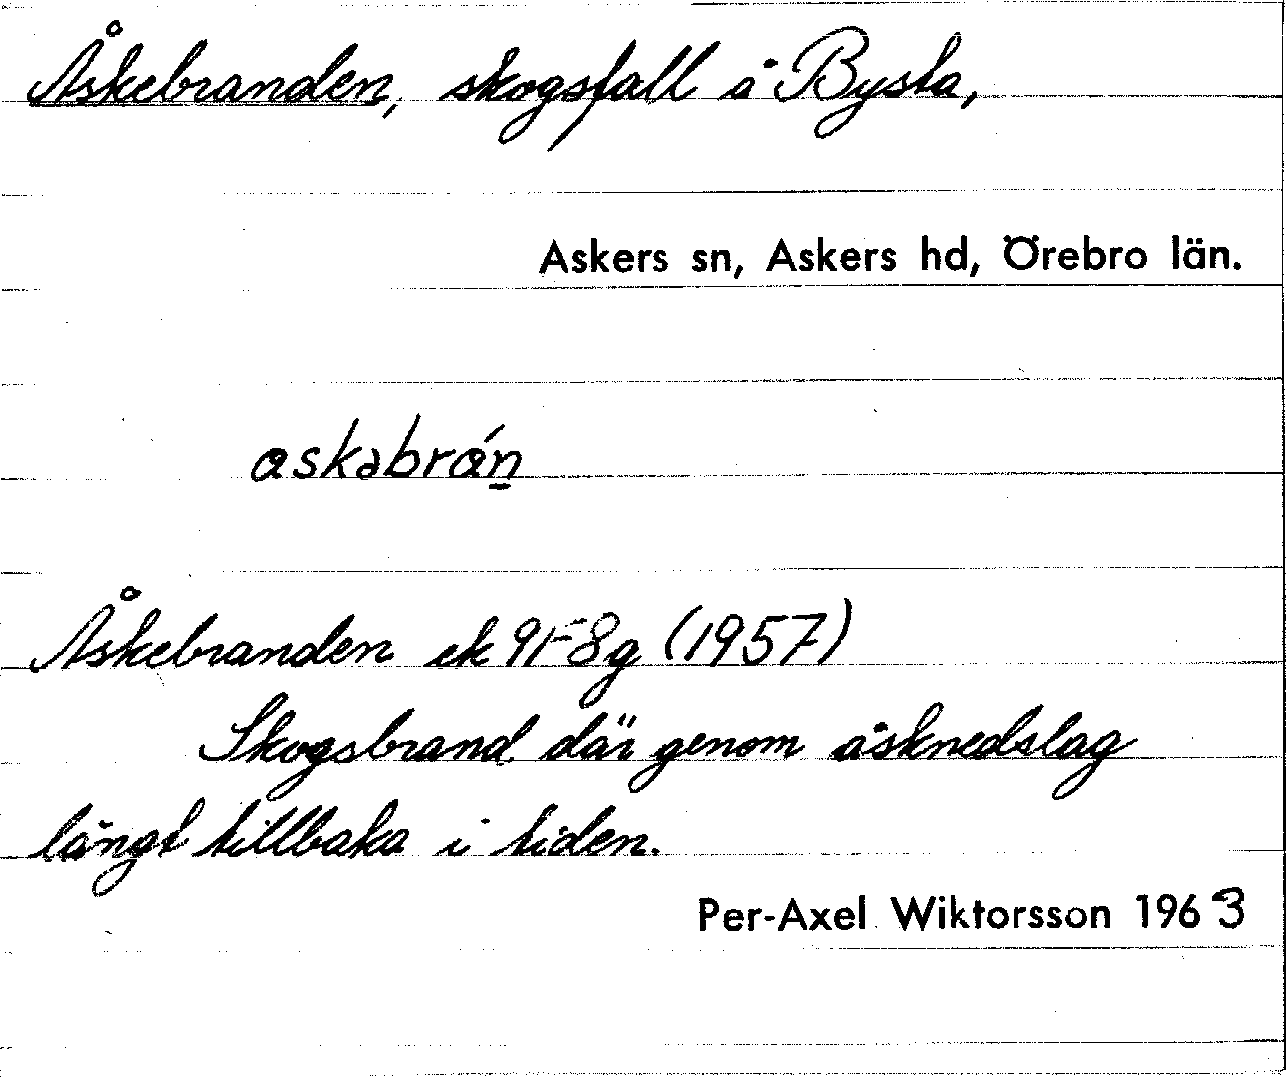 Åskebranden, skogsfall å Bysta,
Askers sn, Askers hd, Örebro län.
askabrán̲
Åskebranden ek 9F8g (1957)
Skogsbrand där genom åsknedslag
långt tillbaka i tiden.
Per-Axel Wiktorsson 1963